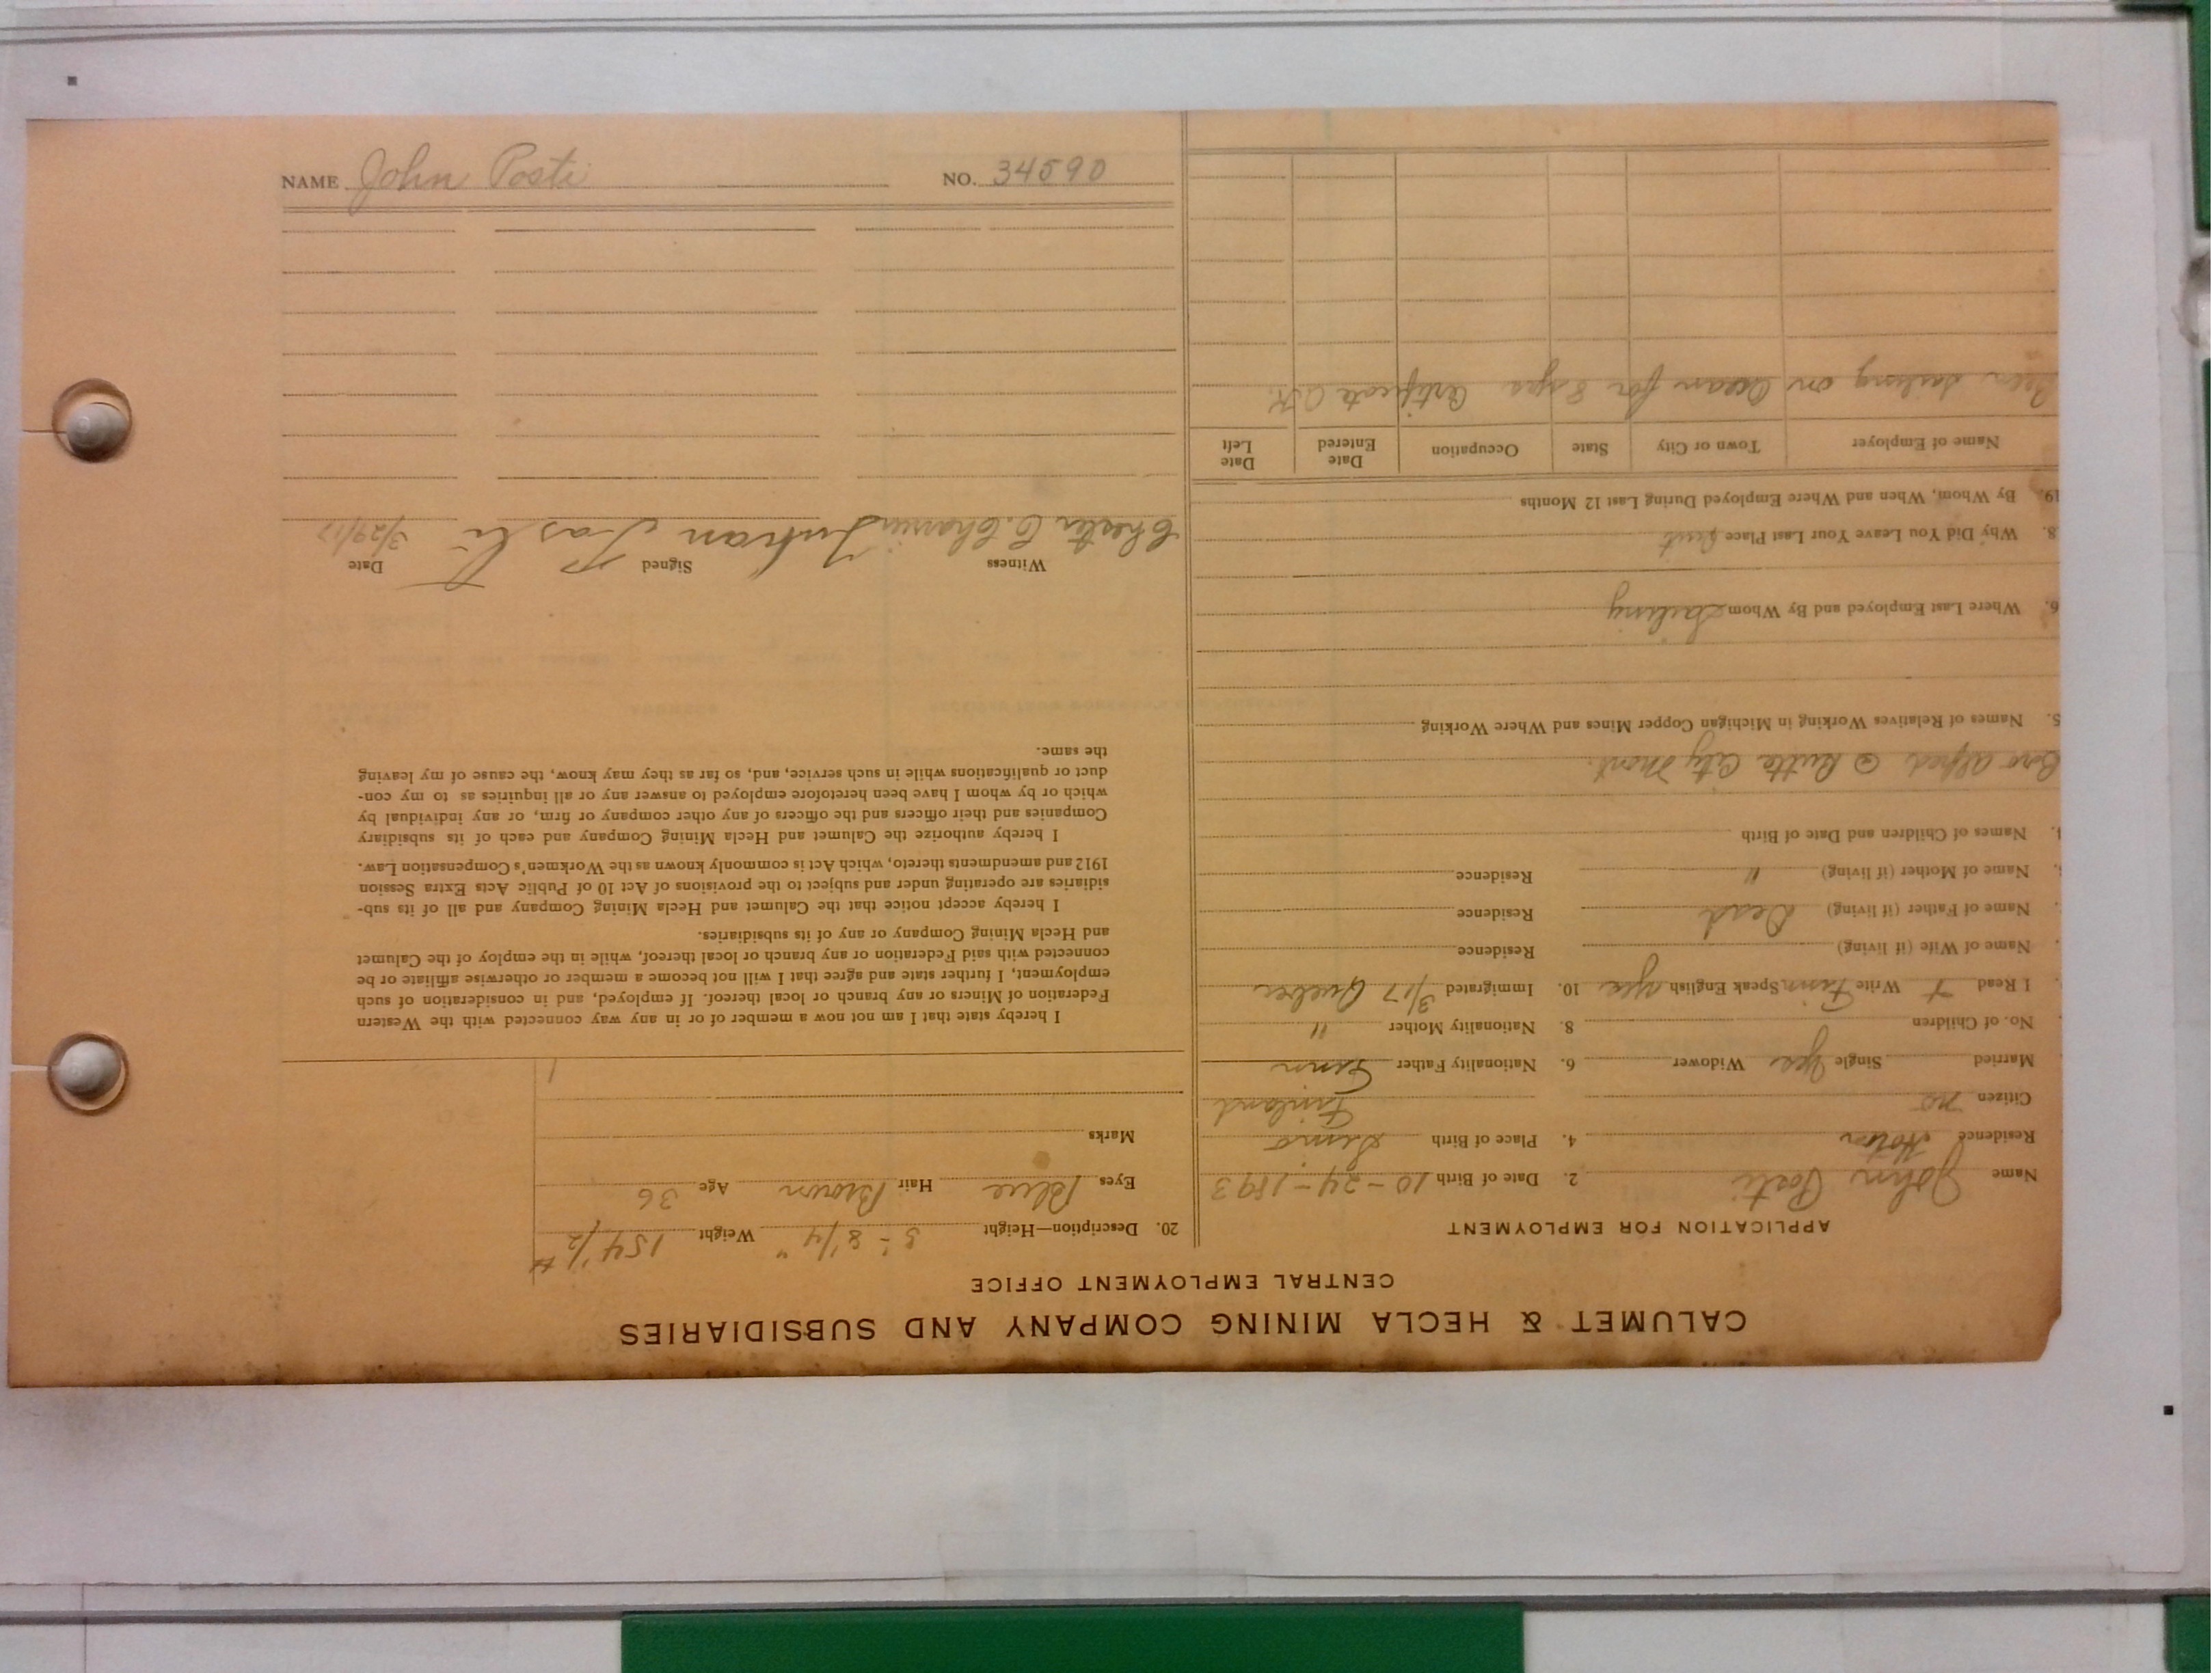 NAME John Posti NO. 34590
CALUMET & HECLA MINING COMPANY AND SUBSIDIARIES
CENTRAL EMPLOYMENT OFFICE
APPLICATION FOR EMPLOYMENT
Name John Posti 2. Date of Birth 10-24-1893
Residence 4. Place of Birth Simo
Finland
Citizen no
Married Single yes Widower 6. Nationality Father Finn
No. of Children 8. Nationality Mother "
I Read + Write Finn Speak English yes 10. Immigrated 3/17 Quebec
Name of Wife (if living) Residence
Name of Father (if living) Dead Residence
Name of Mother (if living) " Residence
Names of Children and Date of Birth
Bro Alfred @ Butte City Mont.
5. Names of Relatives Working in Michigan Copper Mines and Where Working
6. Where Last Employed and By Whom Sailing
8. Why Did You Leave Your Last Place Quit
19. By Whom, When and Where Employed During Last 12 Months
Name of Employer Town or City State Occupation Date Entered Date Left
Been sailing on Ocean for 8 yrs Certificate O.K.
20. Description—Height 5'-8 1/4" Weight 154 1/2 #
Eyes Blue Hair Brown Age 36
Marks
I hereby state that I am not now a member of or in any way connected with the Western
Federation of Miners or any branch or local thereof. If employed, and in consideration of such
employment, I further state and agree that I will not become a member or otherwise affiliate or be
connected with said Federation or any branch or local thereof, while in the employ of the Calumet
and Hecla Mining Company or any of its subsidiaries.
I hereby accept notice that the Calumet and Hecla Mining Company and all of its sub-
sidiaries are operating under and subject to the provisions of Act 10 of Public Acts Extra Session
1912 and amendments thereto, which Act is commonly known as the Workmen's Compensation Law.
I hereby authorize the Calumet and Hecla Mining Company and each of its subsidiary
Companies and their officers and the officers of any other company or firm, or any individual by
which or by whom I have been heretofore employed to answer any or all inquiries as to my con-
duct or qualifications while in such service, and, so far as they may know, the cause of my leaving
the same.
Witness Signed Date
Chester C. 3/29/17